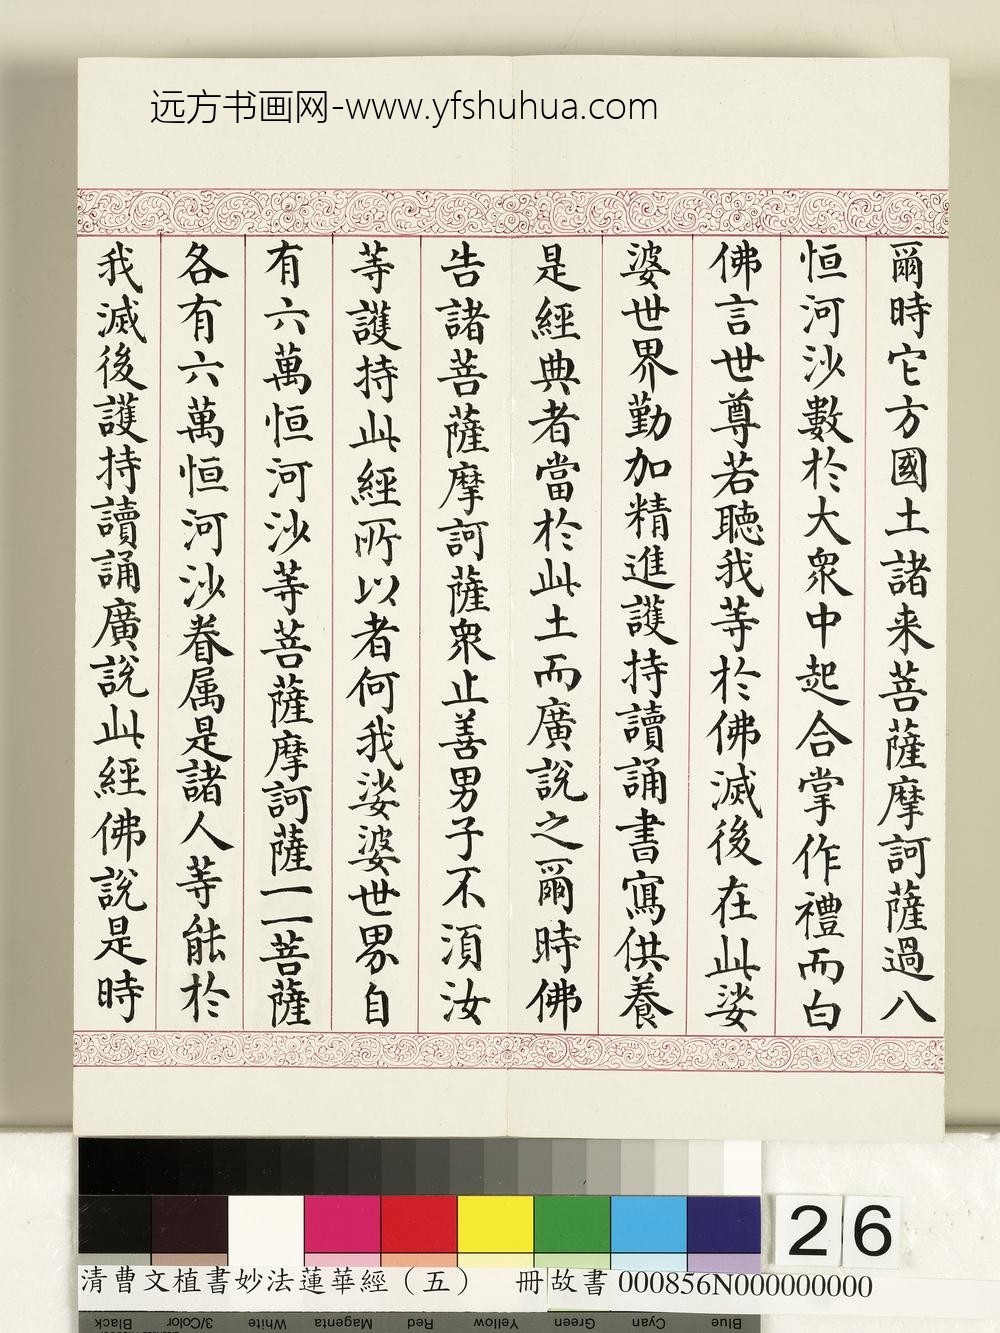 远方书画网-www.yfshuhua.com
爾時它方國土諸来菩薩摩訶薩過八
恒河沙數於大衆中起合掌作禮而白
佛言世尊若聽我等於佛滅後在此娑
婆世界勤加精進護持讀誦書寫供養
是經典者當於此土而廣說之爾時佛
告諸菩薩摩訶薩衆止善男子不須汝
等護持此經所以者何我娑婆世界自
有六萬恒河沙等菩薩摩訶薩一一菩薩
各有六萬恒河沙眷属是諸人等能於
我滅後護持讀誦廣說此經佛說是時
26
清曹文植書妙法蓮華經（五） 冊 故書 000856N000000000
Black 3/Color White Magenta Red Yellow Green Cyan Blue